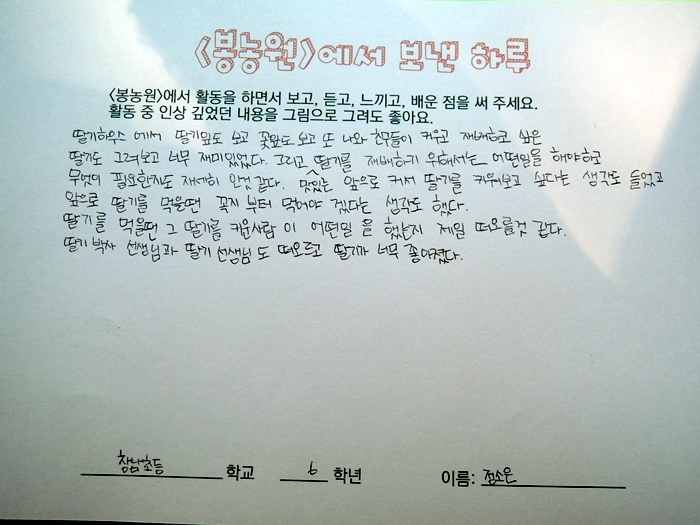 <봉농원>에서 보낸 하루
<봉농원>에서 활동을 하면서 보고, 듣고, 느끼고, 배운 점을 써 주세요.
활동 중 인상 깊었던 내용을 그림으로 그려도 좋아요.
딸기하우스 에서 딸기잎도 보고 꽃잎도 보고 또 나와 친구들이 키우고 재배하고 싶은
딸기도 그려보고 너무 재미있었다. 그리고 딸기를 재배하기 위해서는 어떤일을 해야하고
무엇이 필요한지도 자세히 안것 같다. 맛있는 앞으로 커서 딸기를 키워보고 싶다는 생각도 들었고
앞으로 딸기를 먹을땐 꼭지 부터 먹어야 겠다는 생각도 했다.
딸기를 먹을땐 그 딸기를 키운사람 이 어떤일 을 했는지 제일 떠오를것 같다.
딸기 박사 선생님과 딸기 선생님 도 떠오르고 딸기가 너무 좋아졌다.
창남초등 학교 6 학년 이름: 정소은